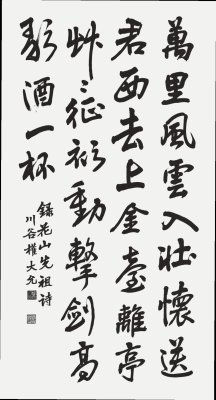 萬里風雲入壯懷送
君西去上金臺離亭
草〻征衫動擊劍高
歌酒一杯
錄花山先祖詩
川谷權大允